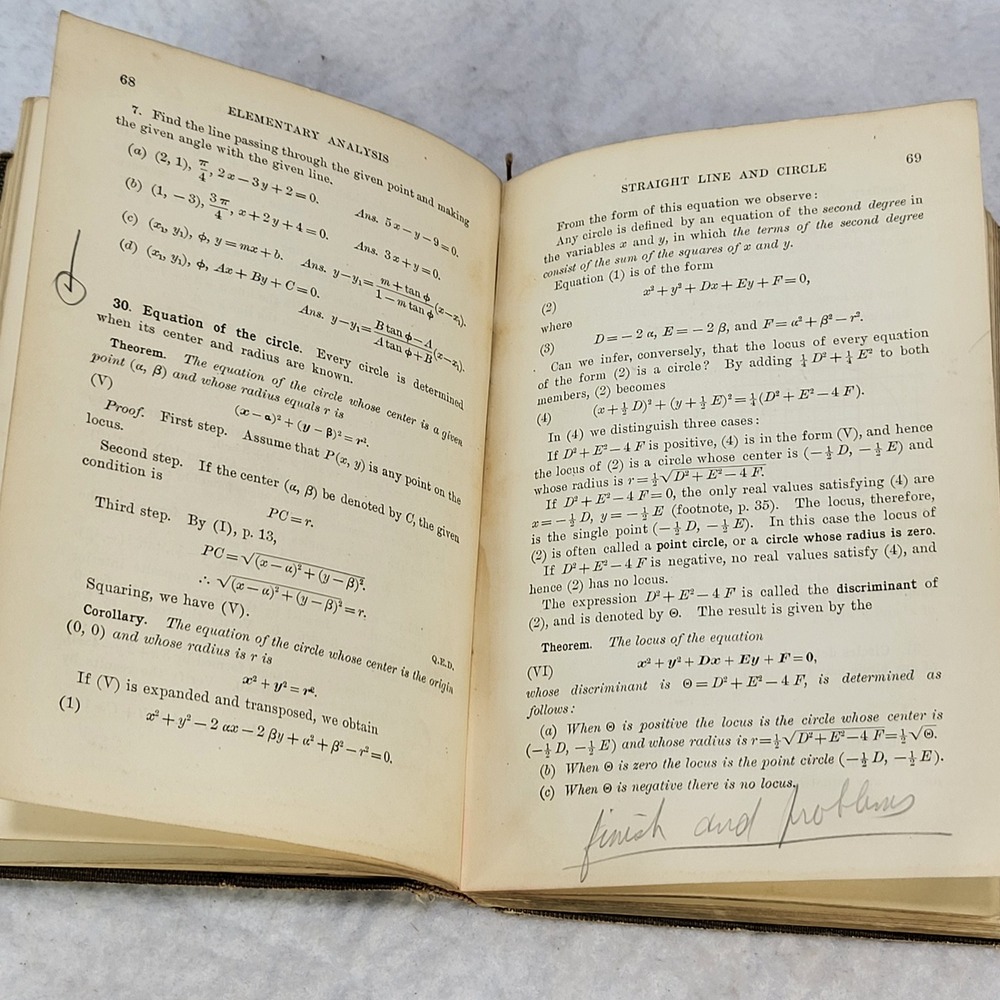 68
ELEMENTARY ANALYSIS
7. Find the line passing through the given point and making
the given angle with the given line.
(a) (2, 1), π/4, 2x − 3y + 2 = 0. Ans. 5x − y − 9 = 0.
(b) (1, −3), 3π/4, x + 2y + 4 = 0. Ans. 3x + y = 0.
(c) (x₁, y₁), ϕ, y = mx + b. Ans. y − y₁ = (m + tan ϕ)/(1 − m tan ϕ) (x − x₁).
(d) (x₁, y₁), ϕ, Ax + By + C = 0.
Ans. y − y₁ = (B tan ϕ − A)/(A tan ϕ + B) (x − x₁).
30. Equation of the circle. Every circle is determined
when its center and radius are known.
Theorem. The equation of the circle whose center is a given
point (α, β) and whose radius equals r is
(V) (x − α)² + (y − β)² = r².
Proof. First step. Assume that P(x, y) is any point on the
locus.
Second step. If the center (α, β) be denoted by C, the given
condition is
PC = r.
Third step. By (I), p. 13,
PC = √(x − α)² + (y − β)².
∴ √(x − α)² + (y − β)² = r.
Squaring, we have (V). Q.E.D.
Corollary. The equation of the circle whose center is the origin
(0, 0) and whose radius is r is
x² + y² = r².
If (V) is expanded and transposed, we obtain
(1) x² + y² − 2 αx − 2 βy + α² + β² − r² = 0.
STRAIGHT LINE AND CIRCLE 69
From the form of this equation we observe:
Any circle is defined by an equation of the second degree in
the variables x and y, in which the terms of the second degree
consist of the sum of the squares of x and y.
Equation (1) is of the form
(2) x² + y² + Dx + Ey + F = 0,
where
(3) D = − 2 α, E = − 2 β, and F = α² + β² − r².
Can we infer, conversely, that the locus of every equation
of the form (2) is a circle? By adding ¼ D² + ¼ E² to both
members, (2) becomes
(4) (x + ½ D)² + (y + ½ E)² = ¼(D² + E² − 4 F).
In (4) we distinguish three cases:
If D² + E² − 4 F is positive, (4) is in the form (V), and hence
the locus of (2) is a circle whose center is (− ½ D, − ½ E) and
whose radius is r = ½√D² + E² − 4 F.
If D² + E² − 4 F = 0, the only real values satisfying (4) are
x = − ½ D, y = − ½ E (footnote, p. 35). The locus, therefore,
is the single point (− ½ D, − ½ E). In this case the locus of
(2) is often called a point circle, or a circle whose radius is zero.
If D² + E² − 4 F is negative, no real values satisfy (4), and
hence (2) has no locus.
The expression D² + E² − 4 F is called the discriminant of
(2), and is denoted by Θ. The result is given by the
Theorem. The locus of the equation
(VI) x² + y² + Dx + Ey + F = 0,
whose discriminant is Θ = D² + E² − 4 F, is determined as
follows:
(a) When Θ is positive the locus is the circle whose center is
(− ½ D, − ½ E) and whose radius is r = ½√D² + E² − 4 F = ½√Θ.
(b) When Θ is zero the locus is the point circle (− ½ D, − ½ E).
(c) When Θ is negative there is no locus.
finish and problems